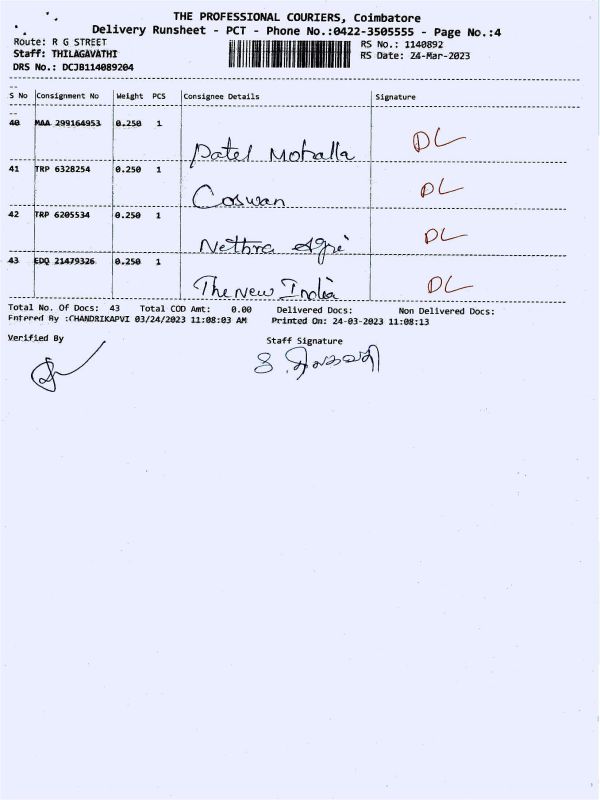 THE PROFESSIONAL COURIERS, Coimbatore
Delivery Runsheet - PCT - Phone No.:0422-3505555 - Page No.:4
Route: R G STREET RS No.: 1140892
Staff: THILAGAVATHI RS Date: 24-Mar-2023
DRS No.: DCJB114089204
S No Consignment No Weight PCS Consignee Details Signature
40 MAA 299164953 0.250 1
Patel Mohalla DL
41 TRP 6328254 0.250 1
Coswan DL
42 TRP 6205534 0.250 1
Nethra Agri DL
43 EDQ 21479326 0.250 1
The New India DL
Total No. Of Docs: 43 Total COD Amt: 0.00 Delivered Docs: Non Delivered Docs:
Entered By :CHANDRIKAPVI 03/24/2023 11:08:03 AM Printed On: 24-03-2023 11:08:13
Verified By Staff Signature